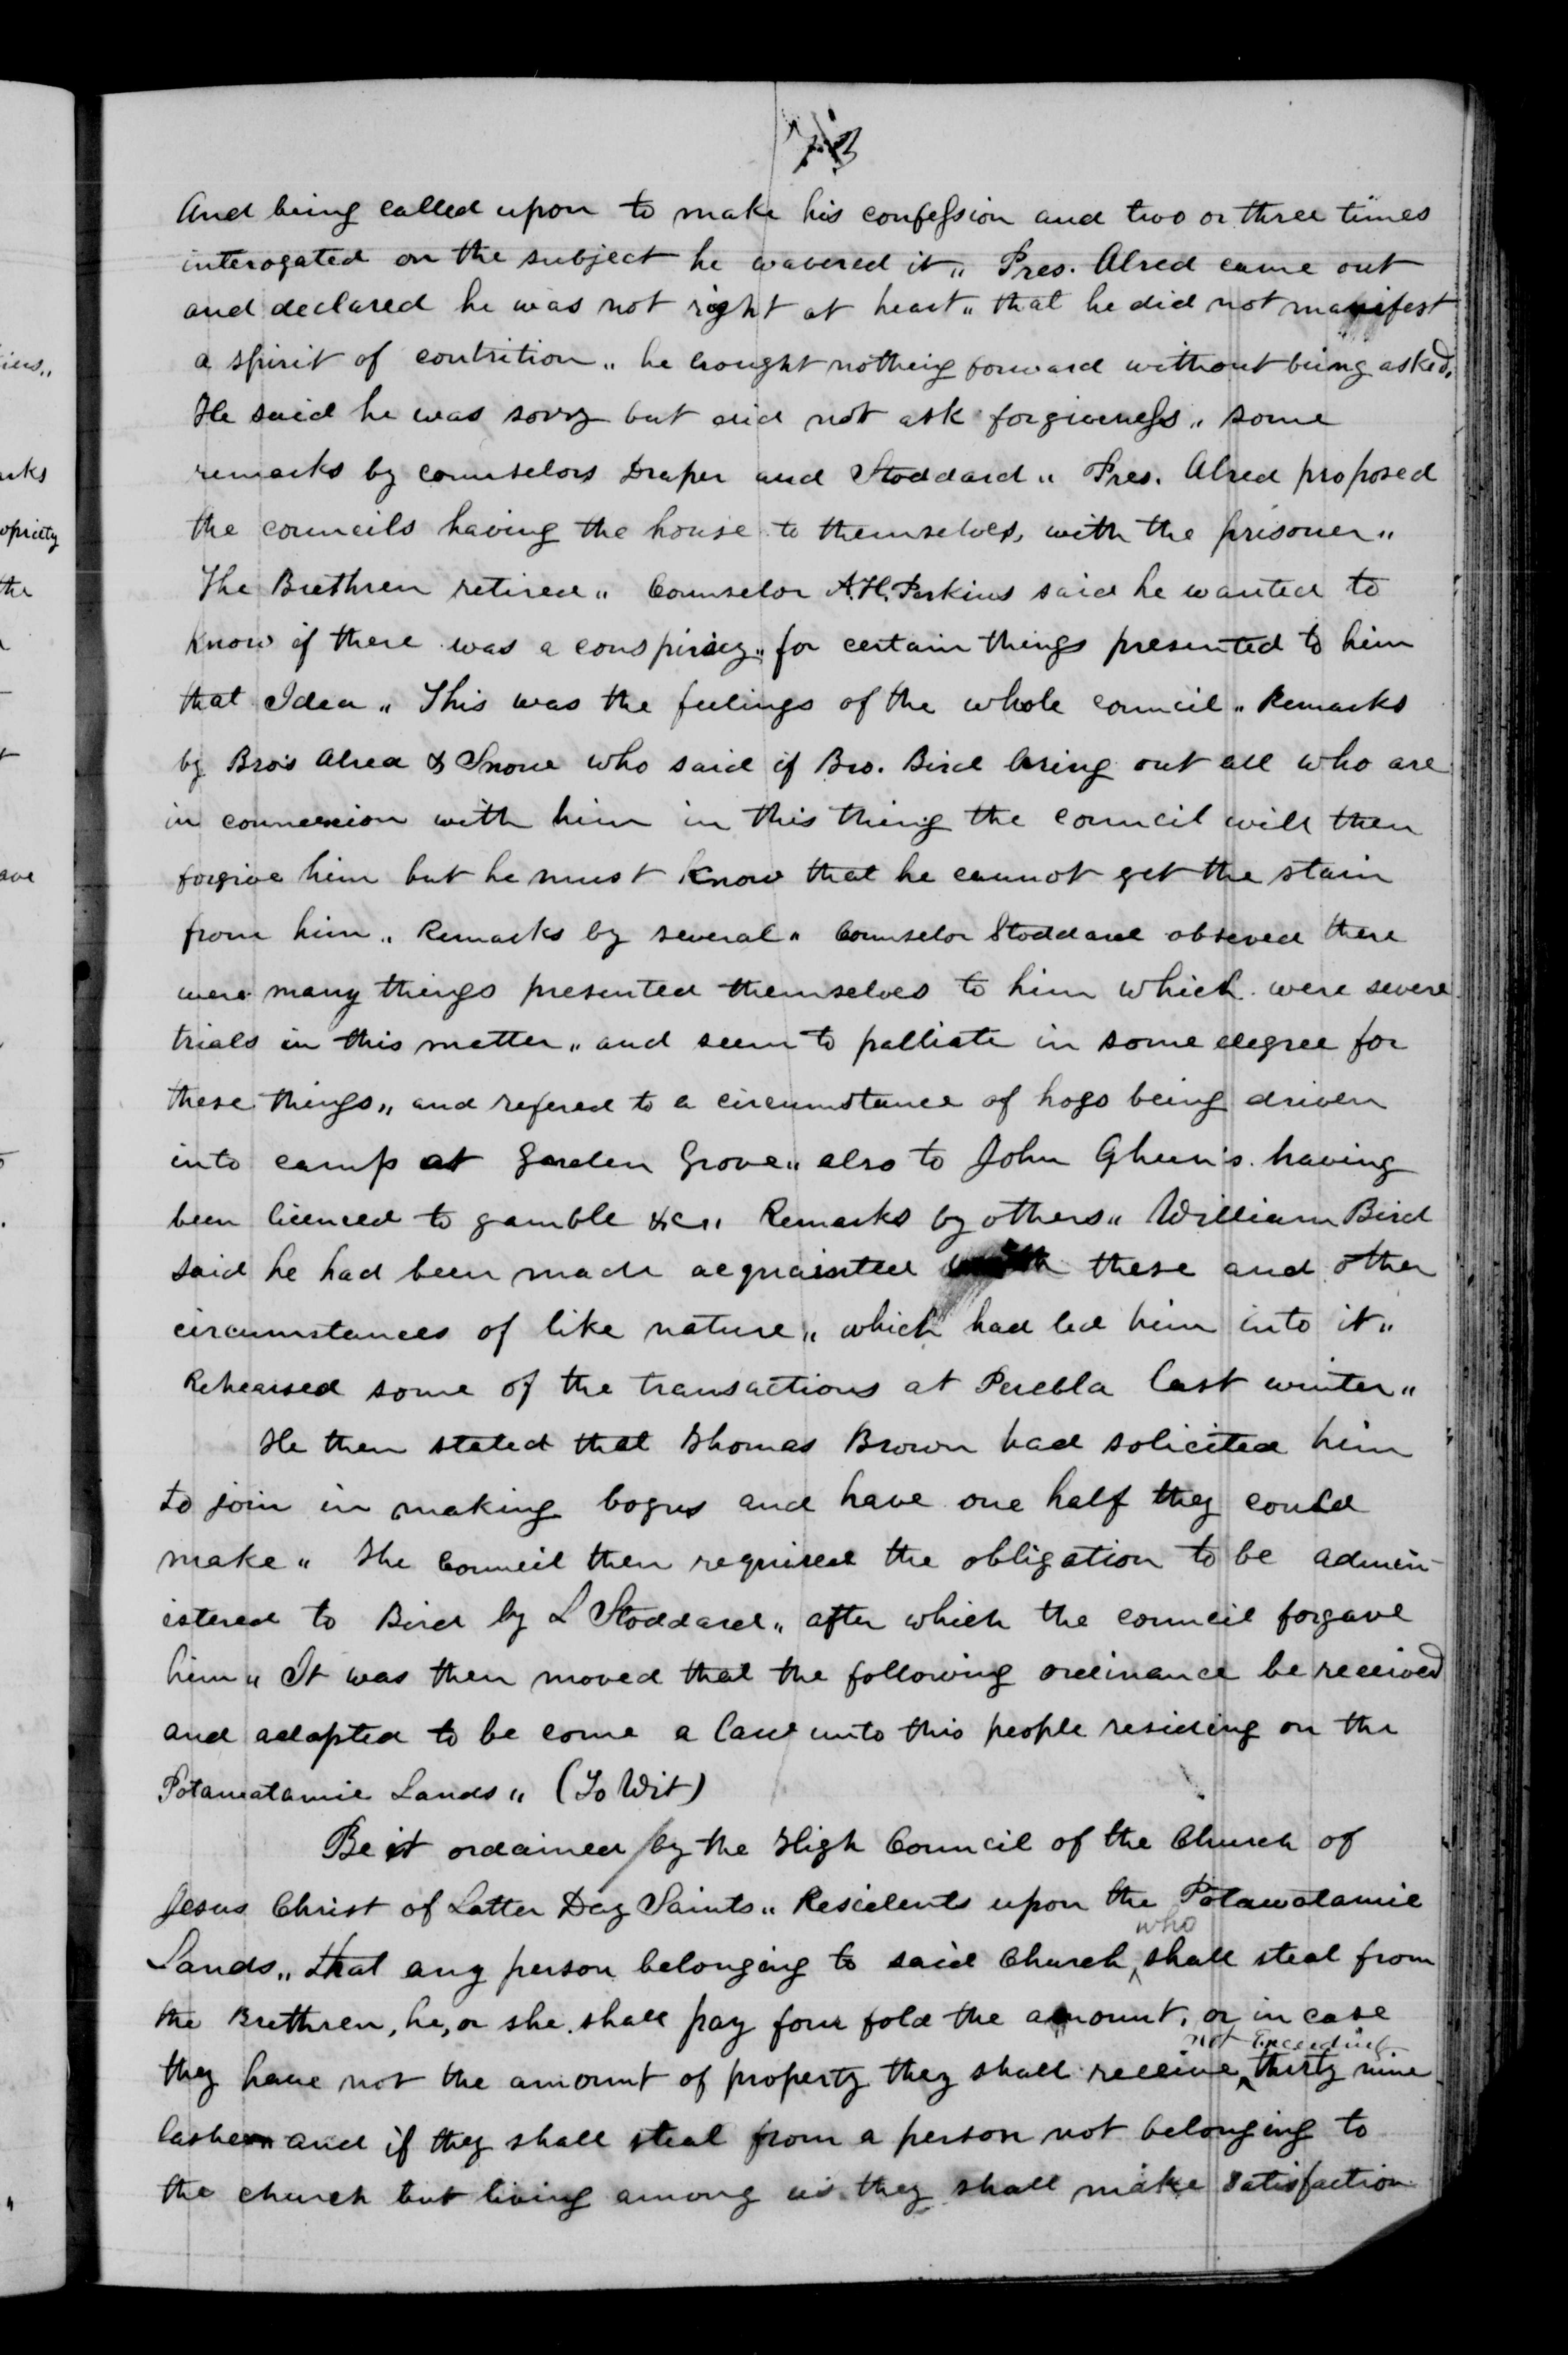 And being called upon to make his confession and two or three times
interogated on the subject he wavered it„ Pres. Alred came out
and declared he was not right at heart„ that he did not manifest
a spirit of contrition„ he brought nothing forward without being asked,
He said he was sorry but did not ask forgiveness„ some
remarks by counselors Draper and Stoddard„ Pres. Alred proposed
the councils having the house to themselves, with the prisoner„
The Brethren retired„ Counselor A.H. Perkins said he wanted to
know if there was a conspiricy„ for certain things presented to him
that Idea„ This was the feelings of the whole council„ Remarks
by Bro's Alred & Snow who said if Bro. Bird bring out all who are
in connexion with him in this thing the council will then
forgive him but he must know that he cannot get the stain
from him„ Remarks by several„ Counselor Stoddard obseved there
were many things presented themselves to him which were severe
trials in this matter„ and seem to palliate in some degree for
these things„ and refered to a circumstance of hogs being driven
into camp at Garden Grove„ also to John Gheen's having
been licenced to gamble &c„ Remarks by others„ William Bird
said he had been made acquainted with these and other
circumstances of like nature„ which had led him into it„
Rehearsed some of the transactions at Peuebla last winter„
He then stated that Thomas Brown had solicited him
to join in making bogus and have one half they could
make„ The Council then required the obligation to be admin-
istered to Bird by L Stoddard„ after which the council forgave
him„ It was then moved that the following ordinance be received
and adopted to be come a law unto this people residing on the
Potawatamie Lands„ (To Wit)
Be it ordained by the High Council of the Church of
Jesus Christ of Latter Day Saints„ Residents upon the Potawatamie
who
Lands„ that any person belonging to said Church ‸ shall steal from
the Brethren, he, or she shall pay four fold the amount, or in case
not Exceeding
they have not the amount of property they shall receive ‸ thirty nine
lashes and if they shall steal from a person not belonging to
the church but living among us they shall make satisfaction